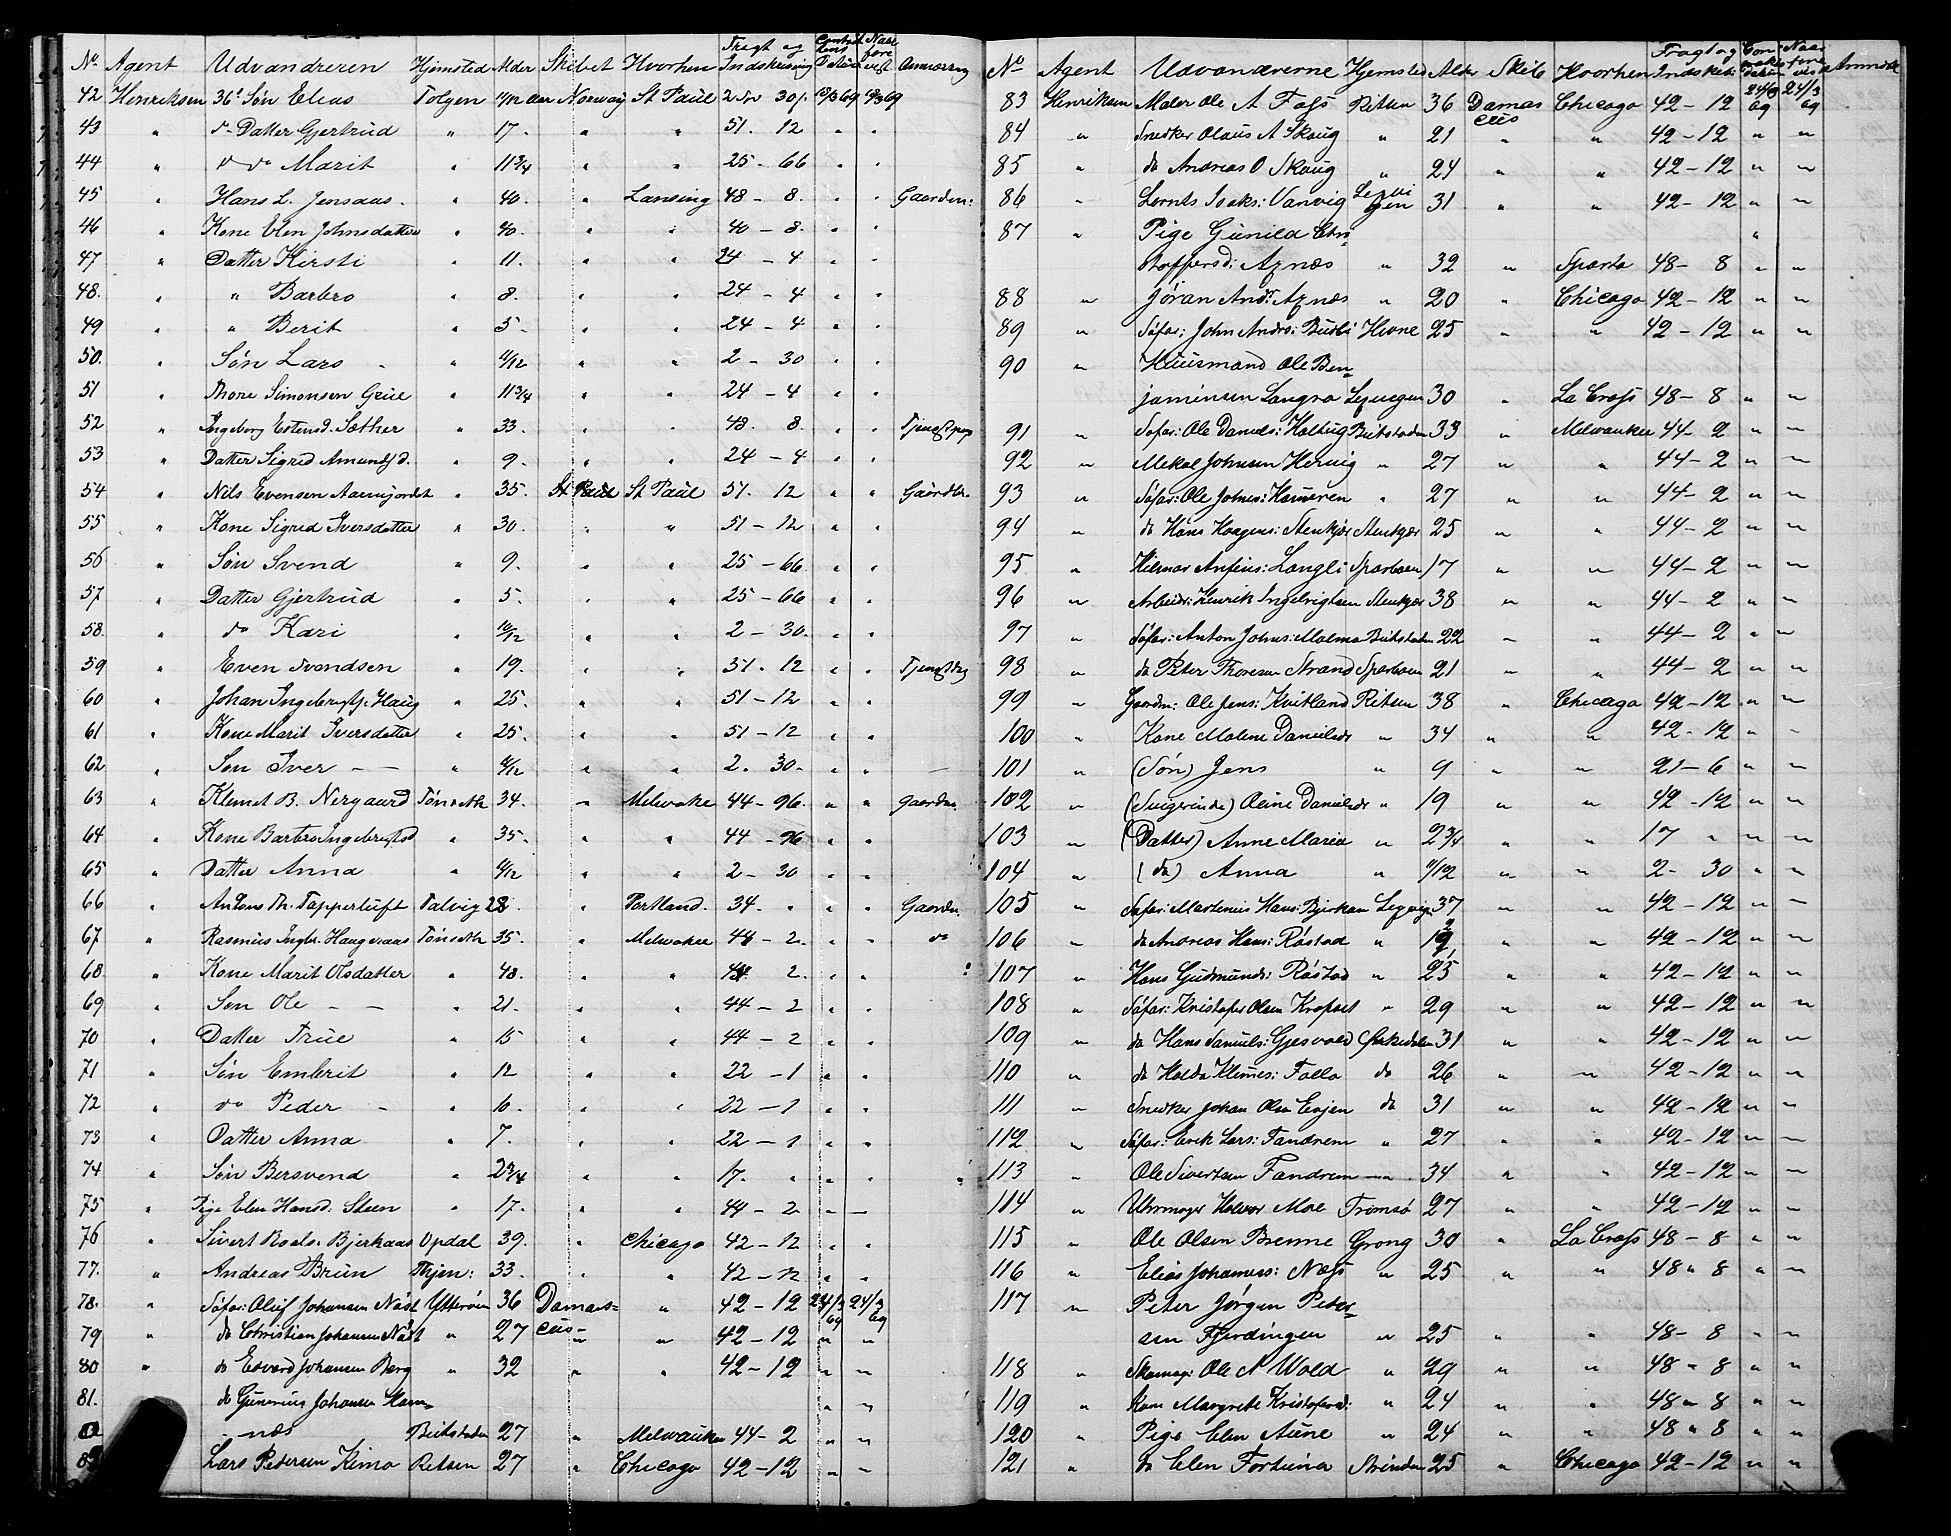 No Agent Udvandreren Hjemsted Alder Skibet Hvorhen Fragt og Indskrivning Anmærkng
42 Henriksen 36' Søn Elias Tolgen 11/12 Aar Norway St Paul 2 Sp 30 s 18/3 69 19/3 69
43 " do Datter Gjertrud " 17. " " 51. 12 " "
44 " do do Marit " 11 3/4 " " 25 - 66 " "
45 " Hans L. Jensaas. " 40. " Lansing 48 - 8. " " Gaardm:
46 " Kone Elen Johnsdatter " 40. " " 40 - 8. " "
47 " Datter Kirsti " 11. " " 24 - 4 " "
48. " " Barbro " 8. " " 24 - 4 " "
49 " " Berit " 5. " " 24 - 4 " "
50. " Søn Lars " " " 2 - 30 " "
51 " Thore Simonsen Grue " 11 3/4 " " 24 - 4 " "
52 " Ingeborg Estensd. Sæther " 33. " " 48. 8. " "
53 " Datter Sigrid Amundsd. " 9. " " 24 - 4 " "
54 " Nils Evensen Aaenjordet " 35. St Paul St Paul 51. 12 " " Gaardbr.
55 " Kone Sigrid Iversdatter " 30. " " 51 - 12 " "
56 " Søn Svend " 9. " " 25 - 66 " "
57 " Datter Gjertrud " 5. " " 25 - 66 " "
58. " do Kari " 10/12 " " 2 - 30. " "
59 " Even Svendsen " 19. " " 51. 12 " "
60 " Johan Ingebrigts. Haug " 25. " " 51 - 12 " "
61 " Kone Marit Iversdatter " 25. " " 51 - 12 " "
62 " Søn Iver - - " " " 2. 30. " "
63 " Klemet B. Nergaard Tønseth 34. " Melwoke 44 - 96. " " Gaardm
64 " Kone Barbro Ingebrigtsd " 35. " " 44 - 96 " "
65 " Datter Anna " " " 2 - 30 " "
66 " Antons Th. Tapperluft Talvig 28. " Portland. 34. " " " Gaardm.
67 " Rasmus Ingbr. Haugeraas Tønseth 35. " Melwoke 44 - 2. " " do
68. " Kone Marit Olsdatter " 48. " " 44 2. " "
69 " Søn Ole - - " 21. " " 44 - 2 " "
70 " Datter Frue " 15 " " 44 - 2 " "
71 " Søn Embrit " 12 " " 22 - 1 " "
72 " do Peder - " 10. " " 22 - 1 " "
73 " Datter Anna " 7. " " 22 - 1 " "
74 " Søn Bersvend " 2 3/4 " " 17. " " "
75 " Pige Elen Hansd. Steen " 17. " " 44 - 2 " "
76 " Sivert Roals. Bjerkaas Opdal 39. " Chicago 42 - 12 " "
77. " Andreas Brun Thjen: 33. " " 42 - 12 " "
78. " Søfar: Oluf Johansen Nást Ytterøen 36 Damas= " 42 - 12 24/3 69 24/3 69
79 " do Christian Johansen Nást " 27 cus " 42 - 12 " "
80 " do Edvard Johansen Berg " 32 " " 42 - 12 " "
81. do Gunerius Johansen Ham= " "
næs Beitstaden 27 " Melwaukee 44 - 2 " "
82 Lars Pedersen Kimo Ritsen 27 " Chicago 42 - 12 " "
No Agent Udvandrerne Hjemsted Alder Skib Hvorhen Fragt og Indskri: Anmærk
83 Henriksen Maler Ole A Foss Ritsen 36 Damas cus Chicago 42 - 12 24/3 69 24/3 69
84 " Snedker Olaus A Skaug " 21 " " 42 - 12 " "
85 " do Andreas O Skaug " 24 " " 42 - 12 " "
86 " Lornts Isaks: Vanvig Lexvi gen 31 " " 42 - 12 " "
87 " Pige Gunild Chri= "
stoffersd: Aznæs " 32 " Sparta 48 - 8 " "
88 " Jøran Andr: Aznæs " 20 " Chicago 42 - 12 " "
89 " Søfar: John Andrs: Busli Hevne 25 " " 42 - 12 " "
90 " Huusmand Ole Ben=
jaminsen Langra Lexvigen 30 " La Cross 48 - 8 " "
91 " Søfar: Ole Daniels: Holtug Beitstaden 33 " Melwaukee 44 - 2 " "
92 " Mikal Johnsen Hervig " 27 " " 44 - 2 " "
93 " Søfar: Ole Johns: Hameren " 27 " " 44 - 2 " "
94 " do Hans Haagens: Stenkjær Stenkjær 25 " " 44 - 2 " "
95 " Hilmar Anfins: Langli Sparboen 17 " " 44 - 2 " "
96 " Arbeidr: Henrik Ingebrigtsen Stenkjær 38 " " 44 - 2 " "
97 " Søfar: Anton Johns: Malmo Beitstaden 22 " " 44 - 2 " "
98 " do Peter Thoresen Strand Sparboen 21 " " 44 - 2 " "
99 " Gaardm: Ole Jens: Kvitland Ritsen 38 " Chicago 42 - 12 " "
100 " Kone Malene Danielsdr " 34 " " 42 - 12 " "
101 " (Søn) Jens " 9 " " 21 - 6 " "
102 " (Svigerinde) Oline Danielsdr " 19 " " 42 - 12 " "
103 " (Datter) Anne Marie " 2 3/4 " " 17 " " "
104 " (do) Anna " " " 2 - 30 " "
105 " Søfar: Martinus Hans: Bjerkan Lexvign 37 " " 42 - 12 " "
106 " do Andreas Hans: Røstad " " " 42 - 12 " "
107 " Hans Gudmunds: Røstad " 25 " " 42 - 12 " "
108 " Søfar: Kristofer Olsen Kropset " 29 " " 42 - 12 " "
109 " do Hans Samuels: Gjesvold Ørkedalen 31 " " 42 - 12 " "
110 " do Halda Klemes: Follo do 26 " " 42 - 12 " "
111 " Snedker Johan Olsen Evjen do 31 " " 42 - 12 " "
112 " Søfar: Erik Lars: Fandrem " 27 " " 42 - 12 " "
113 " Ole Sivertsen Fandrem " 34 " " 42 - 12 " "
114 " Uhrmager Halvor Moe Tromsø 27 " " 42 - 12 " "
115 " Ole Olsen Brenne Grong 30 " La Cross 48 - 8 " "
116 " Elias Johannes: Næss " 25 " " 48 " 8 " "
117 " Peter Jørgen Peder=
sen Fjerdingen " 25 " " 48 - 8 " "
118 " Skomag: Ole N Wold " 29 " " 48 " 8 " "
119 " Kone Margrete Kristofersd: " 24 " " 48 " 8 " "
120 " Pige Elen Aune " 24 " " 48 " 8 " "
121 " do Elen Fortuna Strinden 25 " Chicago 42 - 12 " "